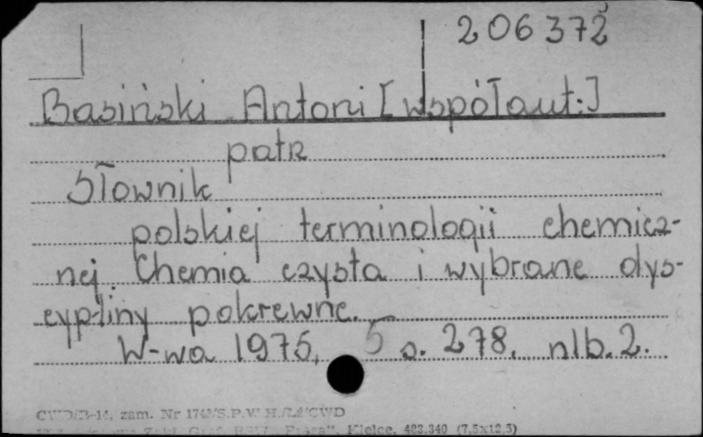 206372
Basiński Antoni [współaut.]
patrz
Słownik
polskiej terminologii chemicz-
nej. Chemia czysta i wybrane dys-
cypliny pokrewne.
W-wa 1975, s. 278, nlb. 2.
CWD/B-14, zam. Nr S.P.W.
Kielce, 423.340 (7,5x12,5)